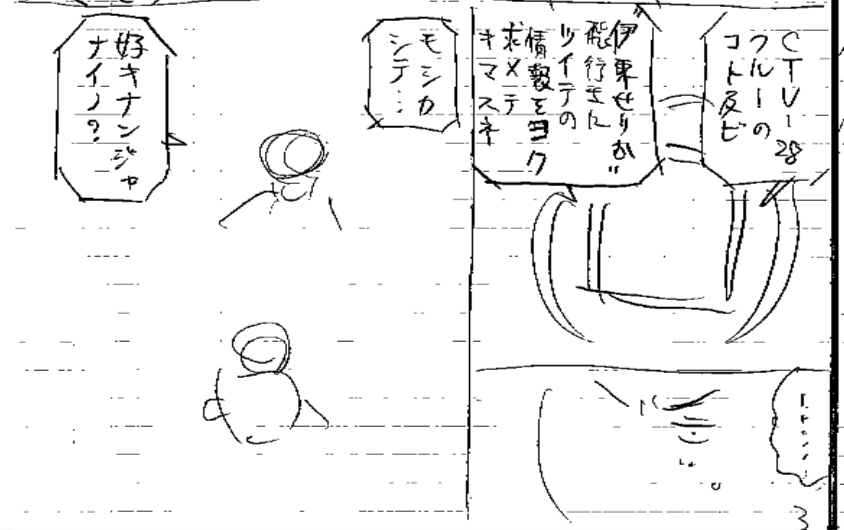 CTU-28
クルーの
コト及ビ
"伊東せりか"
飛行士に
ツイテの
情報をヨク
求メテ
キマスネ
モシカ
シテ…
好キナンジャ
ナイノ?
3